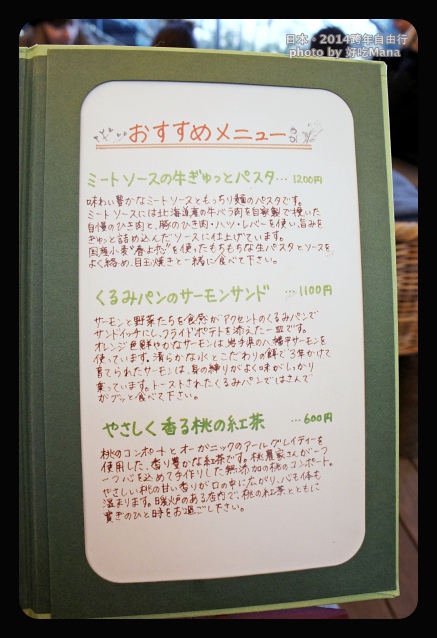 日本。2014跨年自由行
photo by 好吃Mana
おすすめメニュー
ミートソースの牛ぎゅっとパスタ… 1200円
味わい豊かなミートソースともっちり麺のパスタです。
ミートソースには北海道産の牛バラ肉を自家製で挽いた
自慢のひき肉と、豚のひき肉・ハツ・レバーを使い、旨みを
ぎゅっと詰め込んだソースに仕上げています。
国産小麦"春よ恋"を使ったもちもちな生パスタとソースを
よく絡め、目玉焼きと一緒に食べて下さい。
くるみパンのサーモンサンド …1100円
サーモンと野菜たちを食感がアクセントのくるみパンで
サンドイッチにし、フライドポテトを添えた一皿です。
オレンジ色鮮やかなサーモンは、岩手県の八幡平サーモンを
使っています。清らかな水とこだわりの餌で3年かけて
育てられたサーモンは、身の締りがよく味がしっかり
乗っています。トーストされたくるみパンではさんで
ガブッと食べて下さい。
やさしく香る桃の紅茶 …600円
桃のコンポートとオーガニックのアールグレイティーを
使用した、香り豊かな紅茶です。桃農家さんが一つ
一つ心を込めて手作りした無添加の桃のコンポート。
やさしい桃の甘い香りが口の中に広がり、心も体も
温まります。暖炉のある店内で、桃の紅茶とともに
寛ぎのひと時をお過ごし下さい。